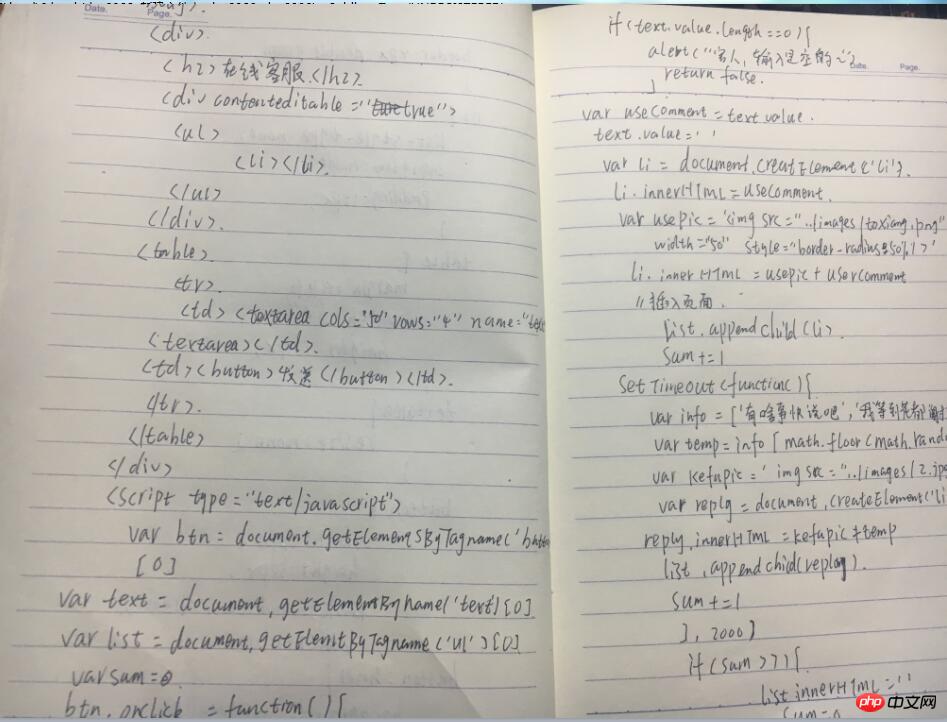 Date.
Page.
<div>.
<h2>在线客服.</h2>.
<div contenteditable="true">
<ul>
<li></li>.
</ul>
</div>.
<table>
<tr>.
<td><textarea cols="50" rows="4" name="text
<textarea></td>.
<td><button>发送</button></td>.
</tr>.
</table>
</div>
<script type="text/javascript">
var btn = document.getElementsByTagname('butto
[0]
var text = document.getElementByname('text)[0].
var list = document.getElemtByTagname('ul')[0]
var sum=0.
btn.onclick = function(){
if(text.value.length==0){
alert("客人,输入是空的
Date.
Page.
return false.
}
var useComment = text.value.
text.value=''
var li = document.creatElement('li').
li.innerHTML=useComment.
var usepic='<img src="../images/toxiang.png"
width="50" style="border-radius:50%">'
li.innerHTML = usepic+usercomment
//插入页面.
list.appendchild(li).
sum+=1
setTimeout(function(){
var info=['有啥事快说吧','我等到
var temp=info[math.floor(math.rando
var kefupic=' img src="../images/2.jpg
var replg=document.createElement('li
reply.innerHTML=kefupic+temp
list.appendchid(replay).
sum+=1
},2000)
if(sum>7){
list innerHTML=''
sum=0
php中文网